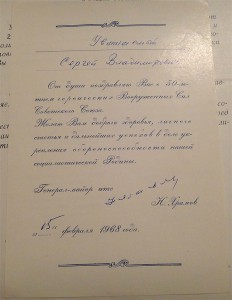 Уважаемый
Сергей Владимирович
От души поздравляю Вас с 50-
летием Вооруженных Сил
Советского Союза.
Желаю Вам доброго здоровья, личного
счастья и дальнейших успехов в деле
укрепления обороноспособности нашей
социалистической Родины.
Генерал-майор
"15" февраля 1968 года.